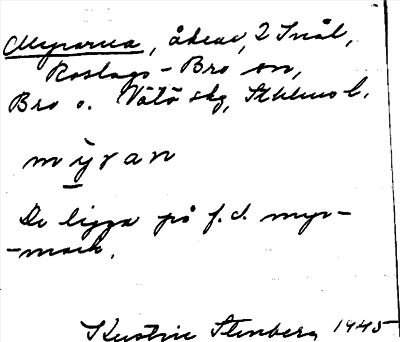 Myrarna, åkrar, 2 Snål,
Roslags-Bro sn,
Bro o. Vätö skg, Sthlms l.
myran
De ligga på f.d. myr-
-mark.
Kerstin Stenberg 1945